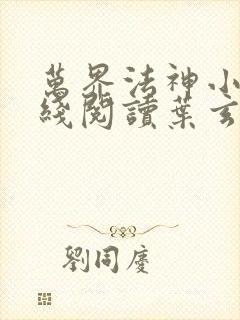 萬界法神小
綫閱讀葉玄
劉同慶